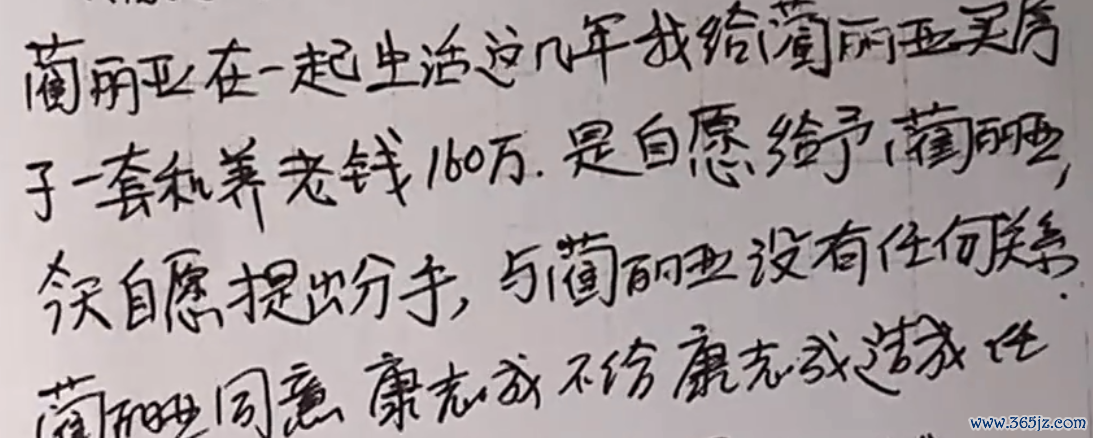 蔺丽亚在一起生活这几年我给蔺丽亚买房
子一套和养老钱160万.是自愿给予蔺丽亚,
今天自愿提出分手,与蔺丽亚没有任何关系.
蔺丽亚同意康志成不给康志成造成任
www.365jz.com